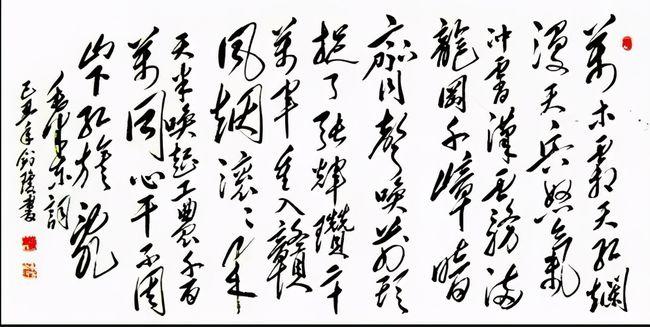 萬木霜天红爛
漫天兵怒氣
冲霄漢霧满
龍岡千嶂暗
齊聲唤前頭
捉了張輝瓚二十
萬軍重入贛
風烟滚々来
天半唤起工農千百
萬同心干不周
山下红旗亂
毛澤東詞
己丑年書